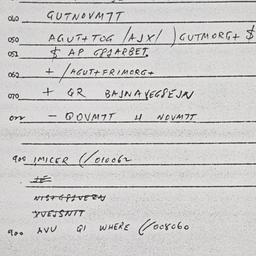 060 GUTNOVMTT
050 AGUT+TOG /AJX/ )GUTMORG+ $
052 $ AP GPJAPBET.
062 + /AGUT+FRIMORG+
070 + GR BAJNAYEGSEJN
072 - QOVMTT 4 NOVMTT
900 IMICER (/010062
JE
YVESSNIT
900 AVU QI WHERE (/008060